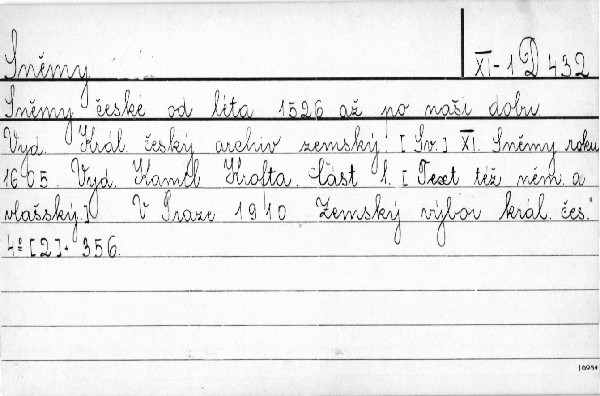 Sněmy
XI-1 D 432
Sněmy české od léta 1526 až po naši dobu
Vyd. Král. český archiv zemský. [Sv.] XI. Sněmy roku
1605. Vyd. Kamil Krofta. Část 1. [Text též něm. a
vlašský.] V Praze 1910 Zemský výbor král. čes.
4º [2]. 356.